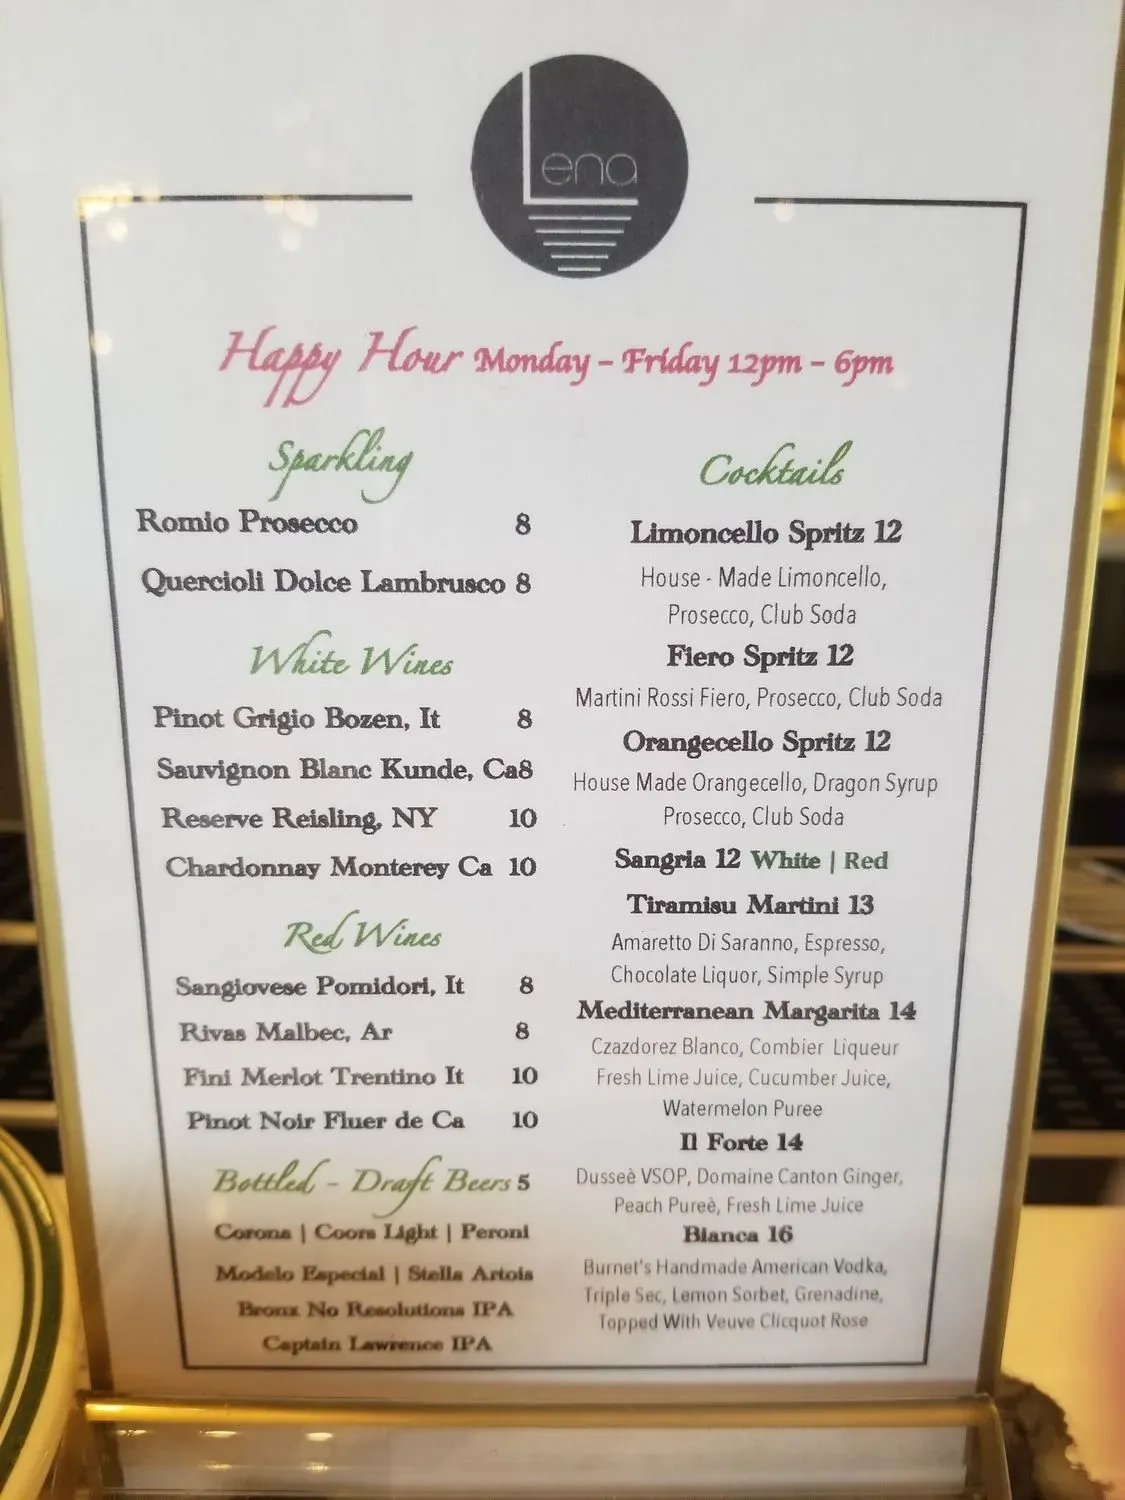 Lena
Happy Hour Monday - Friday 12pm - 6pm
Sparkling
Romio Prosecco 8
Quercioli Dolce Lambrusco 8
White Wines
Pinot Grigio Bozen, It 8
Sauvignon Blanc Kunde, Ca8
Reserve Reisling, NY 10
Chardonnay Monterey Ca 10
Red Wines
Sangiovese Pomidori, It 8
Rivas Malbec, Ar 8
Fini Merlot Trentino It 10
Pinot Noir Fluer de Ca 10
Bottled - Draft Beers 5
Corona | Coors Light | Peroni
Modelo Especial | Stella Artois
Bronx No Resolutions IPA
Captain Lawrence IPA
Cocktails
Limoncello Spritz 12
House - Made Limoncello,
Prosecco, Club Soda
Fiero Spritz 12
Martini Rossi Fiero, Prosecco, Club Soda
Orangecello Spritz 12
House Made Orangecello, Dragon Syrup
Prosecco, Club Soda
Sangria 12 White | Red
Tiramisu Martini 13
Amaretto Di Saranno, Espresso,
Chocolate Liquor, Simple Syrup
Mediterranean Margarita 14
Czazdorez Blanco, Combier Liqueur
Fresh Lime Juice, Cucumber Juice,
Watermelon Puree
Il Forte 14
Dusseè VSOP, Domaine Canton Ginger,
Peach Pureè, Fresh Lime Juice
Bianca 16
Burnet's Handmade American Vodka,
Triple Sec, Lemon Sorbet, Grenadine,
Topped With Veuve Clicquot Rose